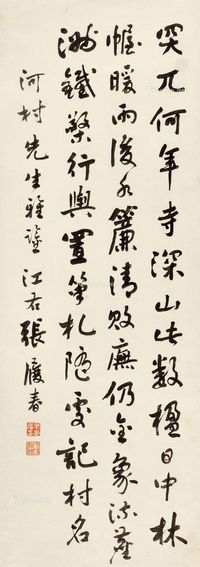 突兀何年寺深山此數楹日中林
幄暖雨後水簾清敗廡仍金象
鐵檠行輿置筆札隨處記村名
河村先生雅鑒 江右張履春